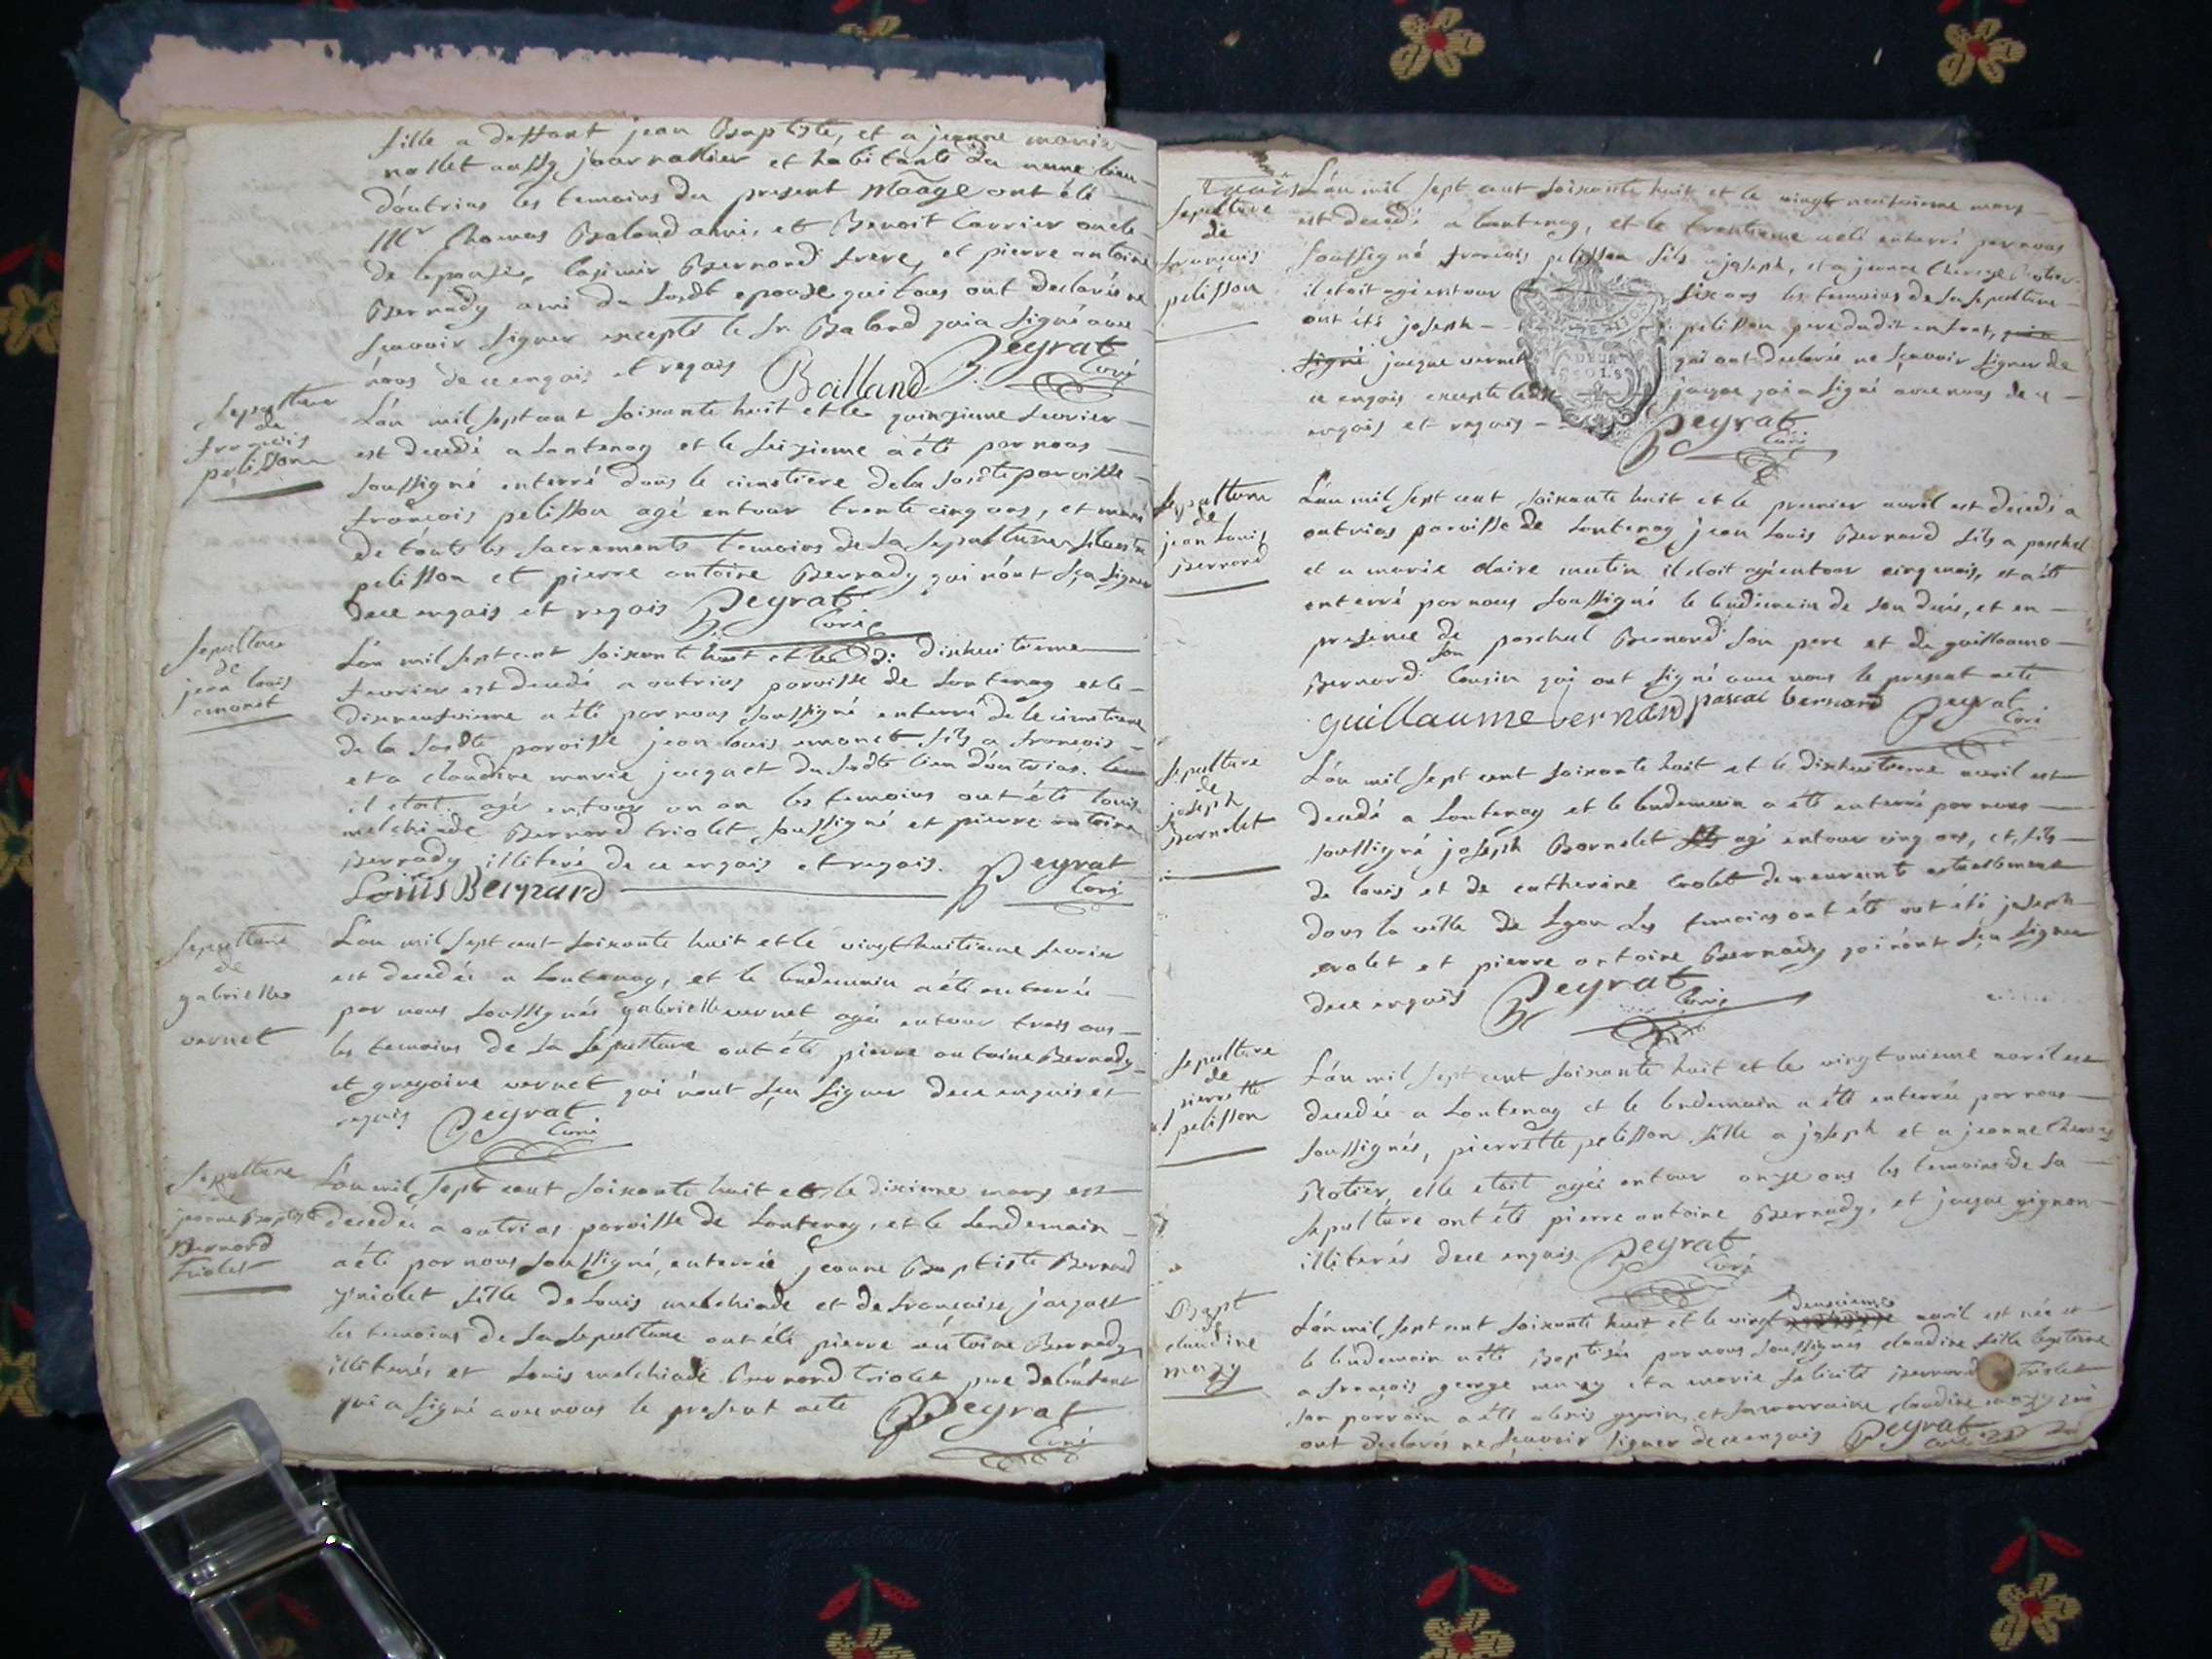 fille a deffunt jean Baptiste, et a jeanne marie
nallet aussy journallier et habitante du meme lieu
d'outrias les temoins du present Maãge ont été
Mr Thomas Baland ami, et Benoit Cavrier oncle
de lepouse, Casimir Bernard frere, et pierre antoine
Bernady ami du susdt epouse qui tous ont declarés ne
sçavoir signer excepté le sr Baland qui a signé avec
nous de ce enquis et requis Balland Peyrat
Curé
Sepulture
de
françois
pelisson
L'an mil sept cent soixante huit et le quinzieme fevrier
est decedé a Lantenay et le seizieme a été par nous
soussigné enterré dans le cimetiere de la susdte paroisse
françois pelisson agé entour trente cinq ans, et muni
de touts les sacrements temoins de sa sepulture silvestre
pelisson et pierre antoine Bernady qui n'ont sçu signer
de ce enquis et requis Peyrat
Curé
Sepulture
de
jean louis
emonet
L'an mil sept cent soixante huit et le dixhuitieme
fevrier est decedé a outrias paroisse de Lantenay et le
dixneufvieme a été par nous soussigné enterré de le cimetiere
de la susdte paroisse jean louis emonet fils a françois
et a claudine marie jacquet du susdt lieu d'outrias.
il etoit agé entour un an les temoins ont été louis
melchiade Bernard triolet soussigné et pierre antoine
Bernady illiteré de ce enquis et requis. Peyrat
Louis Bernard Curé
Sepulture
de
gabrielle
vernet
L'an mil sept cent soixante huit et le vingt huitieme fevrier
est decedée a Lantenay, et le lendemain a été enterrée
par nous soussignés gabrielle vernet agée entour trois ans
les temoins de sa sepulture ont été pierre antoine Bernady
et gregoire vernet qui n'ont sçu signer de ce enquis et
requis Peyrat
Curé
Sepulture
de
jeanne Baptiste
Bernard
triolet
L'an mil sept cent soixante huit et le dixieme mars est
decedée a outrias paroisse de Lantenay, et le lendemain
a été par nous soussigné, enterrée jeanne Baptiste Bernard
triolet fille de Louis melchiade et de françoise jacquet
les temoins de sa sepulture ont été pierre antoine Bernady
illiterés, et Louis melchiade Bernard triolet pere de l'enfant
qui a signé avec nous le present acte Peyrat
Curé
Sepulture
de
françois
pelisson
L'an mil sept cent soixante huit et le vingt neuvieme mars
est decedé a Lantenay, et le trentieme a été enterré par nous
soussigné françois pelisson fils a joseph, et a jeanne therese
il etoit agé entour six ans les temoins de sa sepulture
ont été joseph pelisson pere dudit enfant,
signé jacque vernet qui ont declarés ne sçavoir signer de
ce enquis excepté ledt jacque qui a signé avec nous de ce
enquis et requis Peyrat
Curé
Sepulture
de
jean Louis
Bernard
L'an mil sept cent soixante huit et le premier avril est decedé a
outrias paroisse de Lantenay jean Louis Bernard fils a paschal
et a marie claire mutin il etoit agé entour cinq mois, et a été
enterré par nous soussigné le lendemain de son decés, et en
presence de paschal Bernard son pere et de guillaume
Bernard son Cousin qui ont signé avec nous le present acte
guillaume bernard pascal bernard Peyrat
Curé
Sepulture
de
joseph
Bornelet
L'an mil sept cent soixante huit et le dixhuitieme avril est
decedé a Lantenay et le lendemain a été enterré par nous
soussigné joseph Bornelet agé entour cinq ans, et fils
de louis et de catherine Crolet demeurent actuellement
dans la ville de Lyon Les temoins ont été ont été joseph
crolet et pierre antoine Bernady qui n'ont sçu signer
de ce enquis Peyrat
Curé
Sepulture
de
pierrette
pelisson
L'an mil sept cent soixante huit et le vingt unieme avril est
decedée a Lantenay et le lendemain a été enterrée par nous
soussignés, pierrette pelisson fille a joseph et a jeanne therese
elle etoit agée entour onze ans les temoins de sa
sepulture ont été pierre antoine Bernady, et jacque
illiterés de ce enquis. Peyrat
Curé
Bapt
de
claudine
mazy
L'an mil sept cent soixante huit et le vingt deuxieme avril est née et
le lendemain a été baptisée par nous soussignés claudine fille legitime
a françois george mazy et a marie felicité Bernard triolet
son parrain a été alexis et sa marraine claudine mazy qui
ont declarés ne sçavoir signer de ce enquis Peyrat
curé